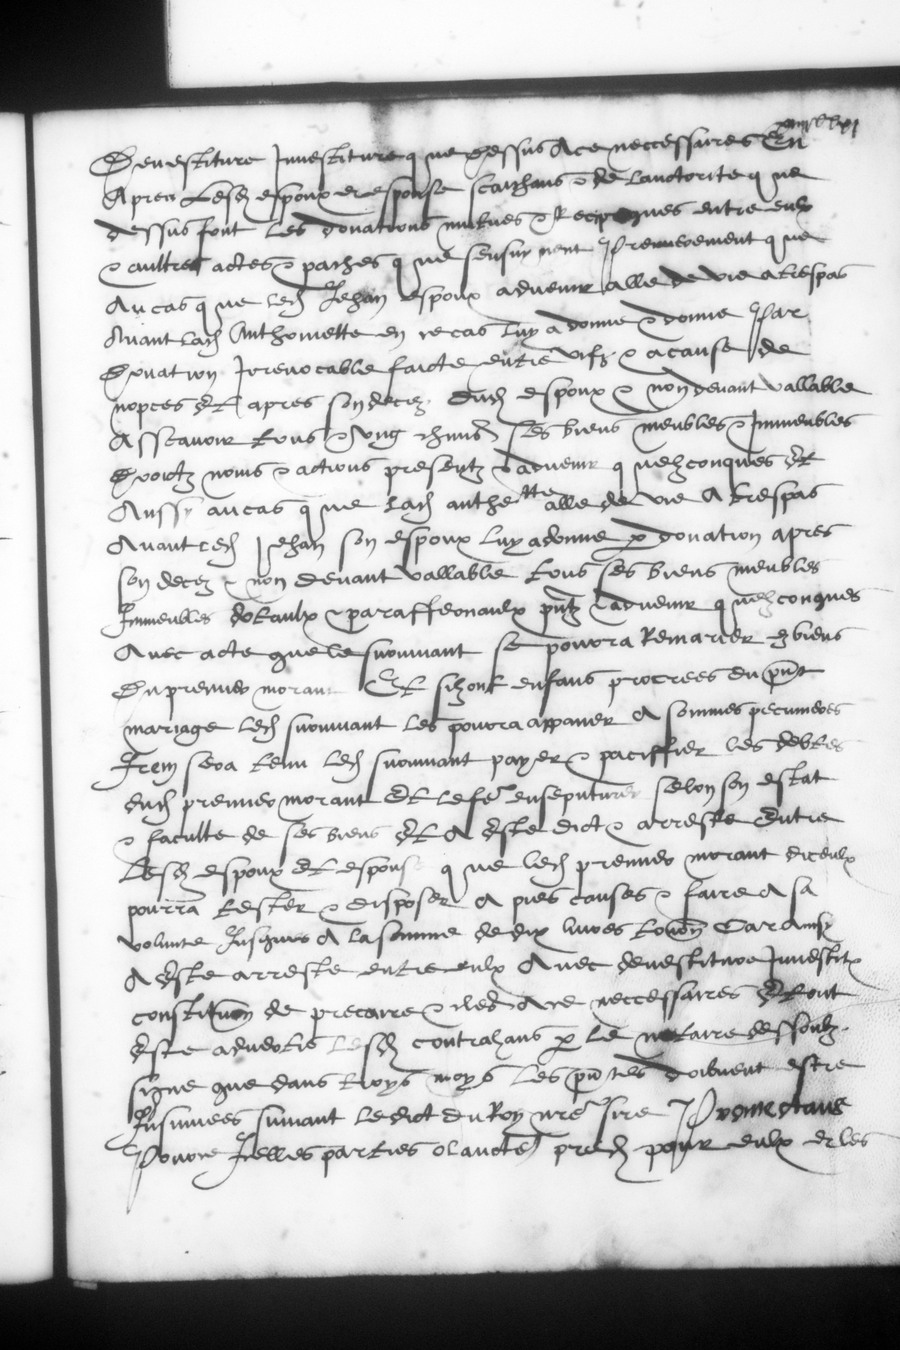 Devestiture Investiture que dessus Ace neccessaires En
Apres Lesd espoux et espouse scaichans & de lauctorite que
dessus font les donations mutues & Reciproques entre eulx
& aultres actes & paches que sensuyvent Premierement que
Au cas que led Jehan espoux advenir alle de vie a trespas
Avant lad Anthoinette en ce cas luy a donne & donne Par
Donation Irrevocable faicte entre vifz & a cause de
nopces Et apres son decez dud espoux & non devant vallable
Asscavoir tous & ung chuns ses biens meubles & Immeubles
Droictz noms & actions presentz & advenir quelzconques Et
Aussy au cas que lad anthe tte alle de vie A trespas
Avant led Jehan son espoux luy a donne p donation apres
son decez & non devant vallable tous ses biens meubles
Immeubles dotaulx & paraffernaulx pntz & advenir quelzconques
Avec acte que le survivant se pouvra Remarier es biens
Du premier morant Et silz ont enfans procrees du pnt
mariage led survivant les pouvra appaner A sommes pecunieres
Item sera tenu led survivant payer & paciffier les debtes
dud premier morant Et le fe ensepulturer selon son estat
& faculte de ses biens Et A este dict & arreste Entre
Lesd espoux Et espouse que led premier morant diceulx
pourra tester & disposer A pies causes & faire A sa
volunte Jusques A la somme de dix livres tourn Car Ainsy
A este arreste entre eulx Avec devestiture Investit
constitution de precaire & aces neccessaires Et ont
este advertis Lesd contrahans p le notaire dessoubz
signe que dans troys moys les pntes doibvent estre
Insinuees suivant Ledict du Roy nre sire Promectans
Pource Icelles parties o lauctte pred pour eulx et les